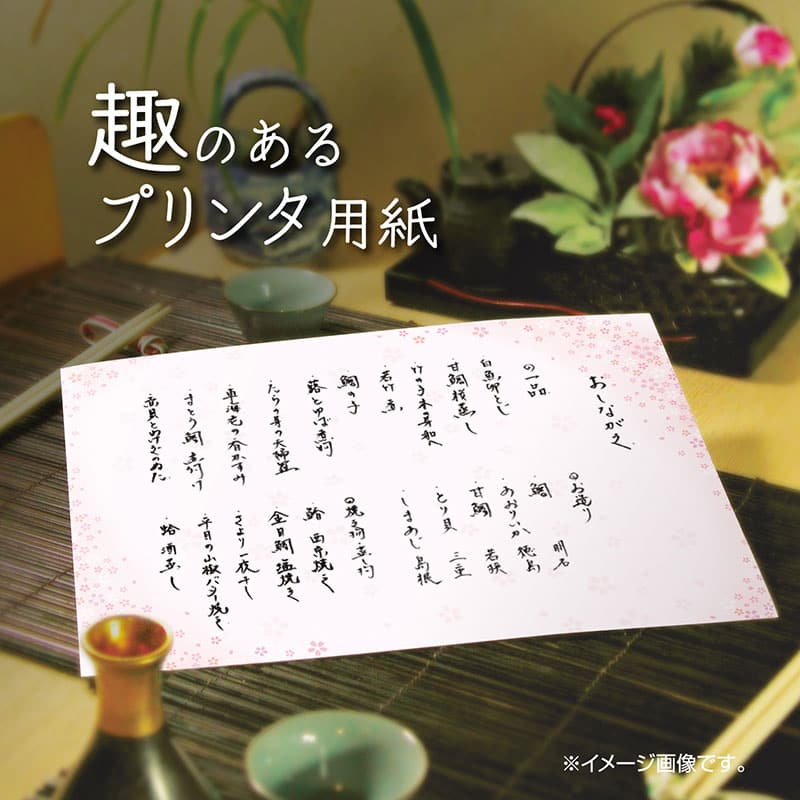 趣のある
プリンタ用紙
おしながき
の一品
白魚卵とじ
甘鯛桜蒸し
竹の子木の芽和え
若竹煮
鯛の子
蕗とゆば煮物
たらの芽の天婦羅
車海老の香かすみ
まとう鯛煮付け
のお造り
鯛 明石
あおりいか 徳島
甘鯛 若狭
とり貝 三重
しまあじ 島根
の焼き物煮物
鮨 西京焼き
金目鯛塩焼き
さより一夜干し
平目の山椒バター焼き
蛤酒蒸し
※イメージ画像です。